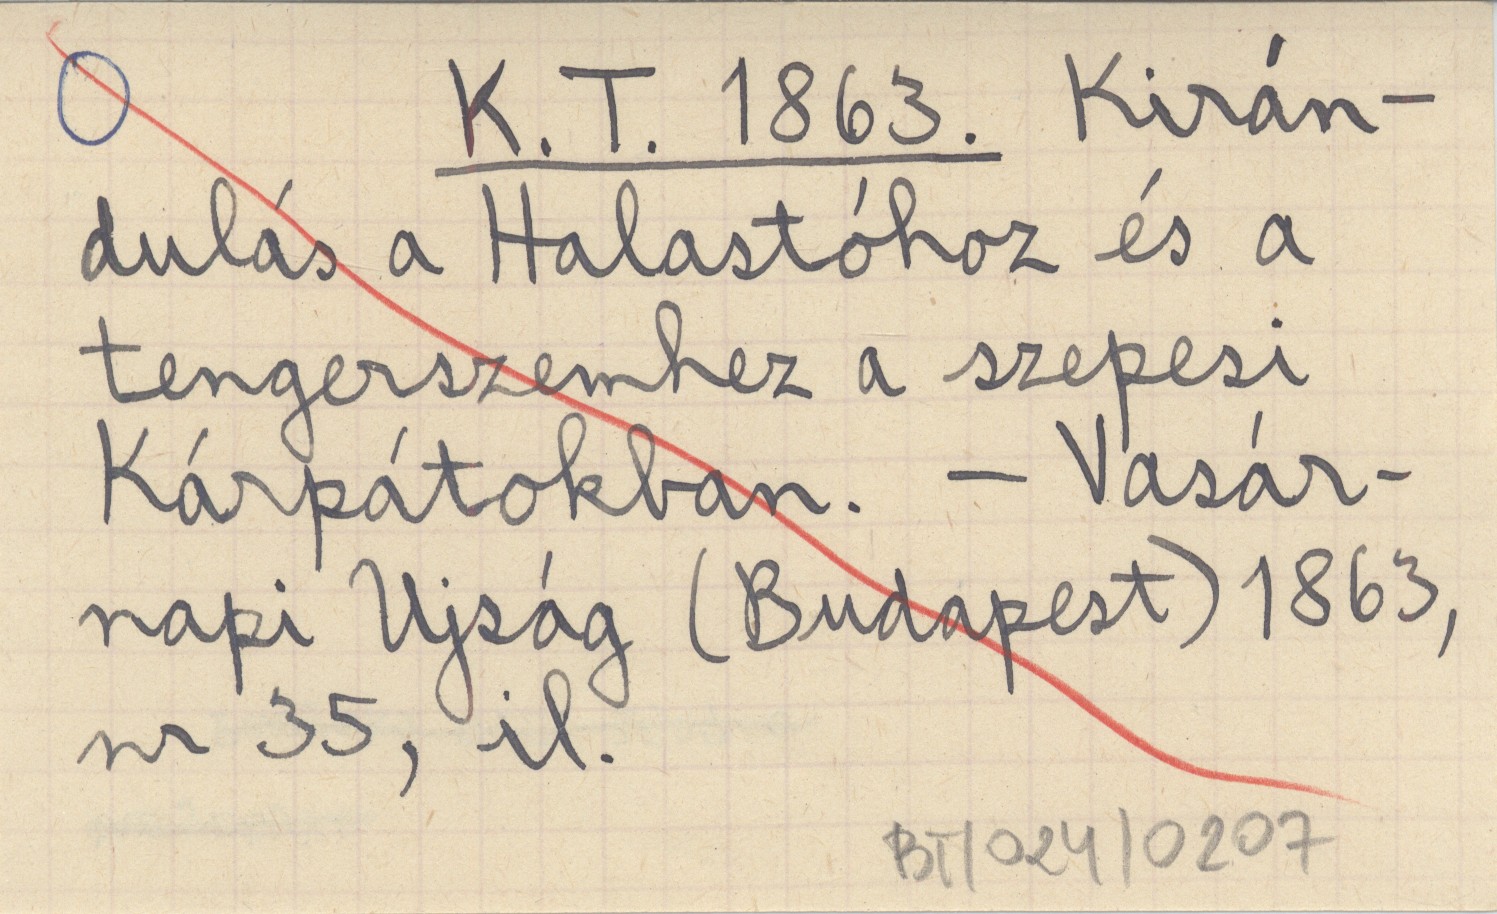 K. T. 1863. Kirán-
dulás a Halastóhoz és a
tengerszemhez a szepesi
Kárpátokban. — Vasár-
napi Ujság (Budapest) 1863,
nr 35, il.
BT/024/0207